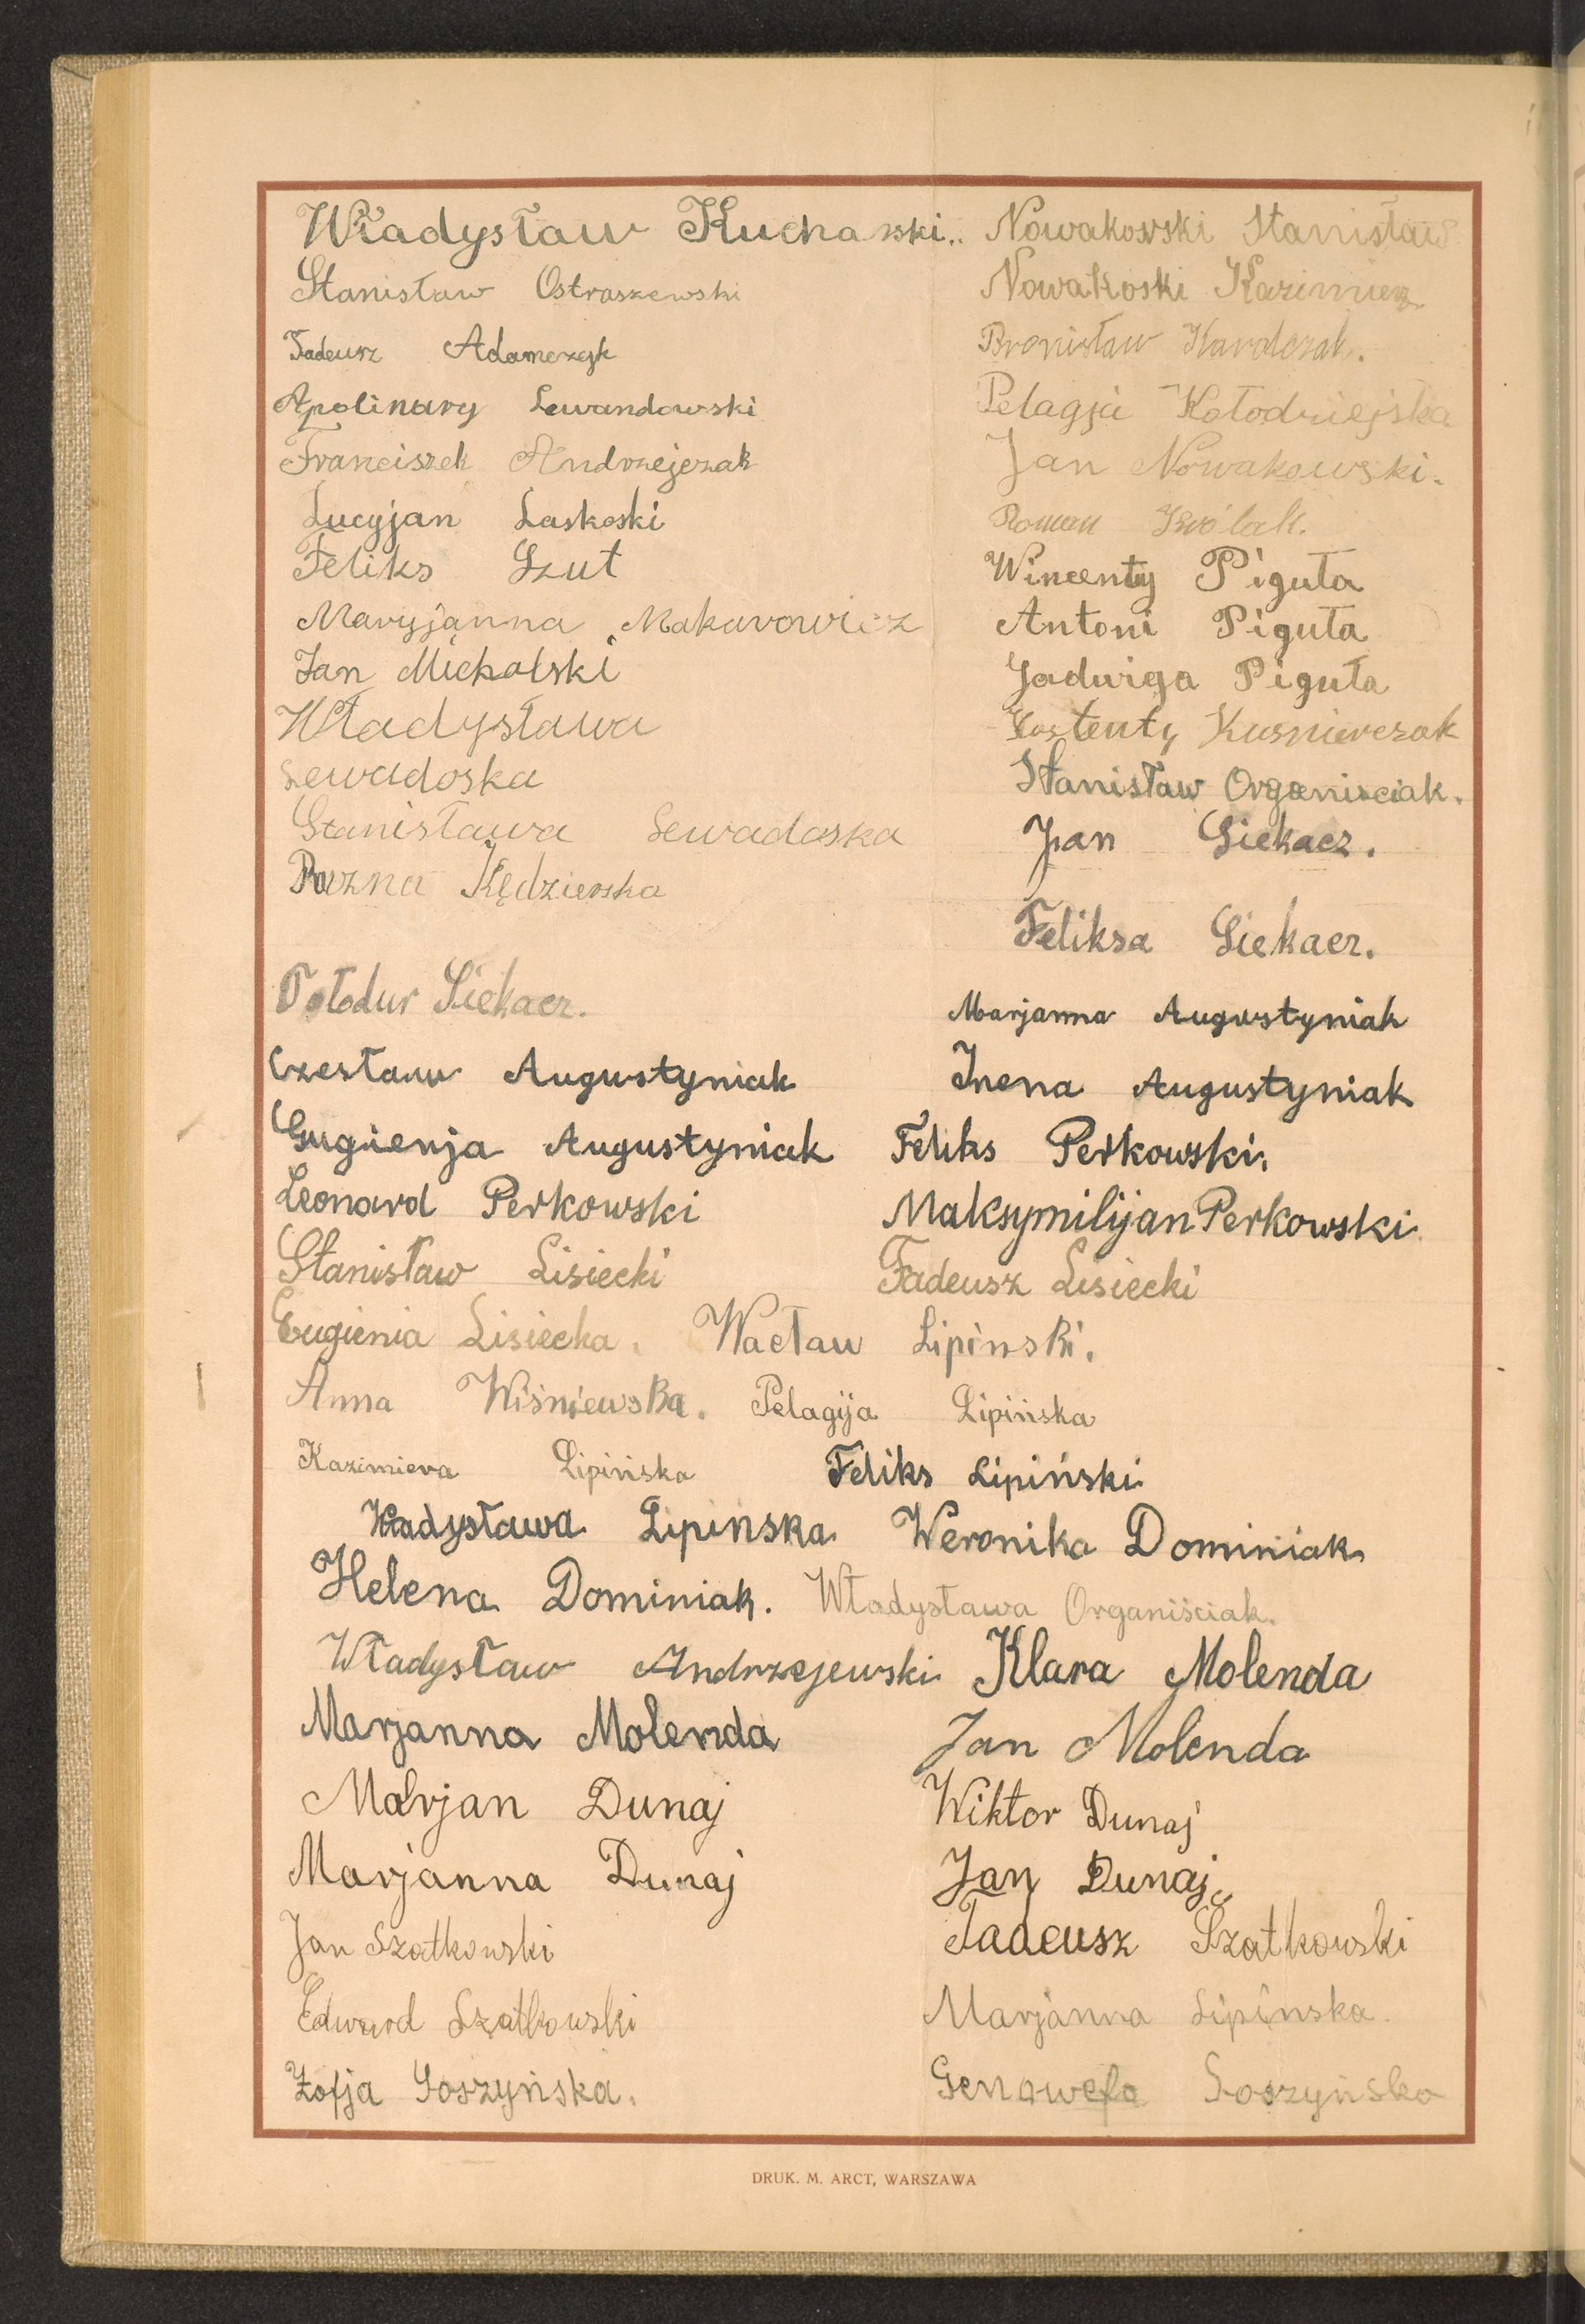 Władysław Kucharski.. Nowakowski Stanisław
Stanisław Ostraszewski Nowakoski Kazimierz
Tadeusz Adamczyk Bronisław Karolczak.
Apolinary Lewandowski Pelagja Kołodziejska
Franciszek Andrzejczak Jan Nowakowski.
Lucyjan Laskoski Roman Królak.
Feliks Szut Wincenty Piguła
Maryjanna Makarowicz Antoni Piguła
Jan Michalski Jadwiga Piguła
Władysława Kusnierczak
Lewadoska Stanisław Organisciak.
Stanisława Lewadoska Jan Siekacz.
Kędzierska
Feliksa Siekacz.
Siekacz. Marjanna Augustyniak
Czesław Augustyniak Irena Augustyniak
Gugienja Augustyniak Feliks Perkowski.
Leonard Perkowski Maksymilijan Perkowski
Stanisław Lisiecki Tadeusz Lisiecki
Eugienia Lisiecka. Wacław Lipinski.
Anna Wiśniewska. Pelagija Lipińska
Kazimiera Lipińska Feliks Lipiński
Władysława Lipinska Weronika Dominiak
Helena Dominiak. Władysława Organiściak.
Władysław Andrzejewski Klara Molenda
Marjanna Molenda Jan Molenda
Marjan Dunaj Wiktor Dunaj
Marjanna Dunaj Jan Dunaj
Jan Szatkowski Tadeusz Szatkowski
Edward Szatkowski Marjanna Lipinska.
Zofja Soszyńska. Genowefa Soszyńska
DRUK. M. ARCT, WARSZAWA